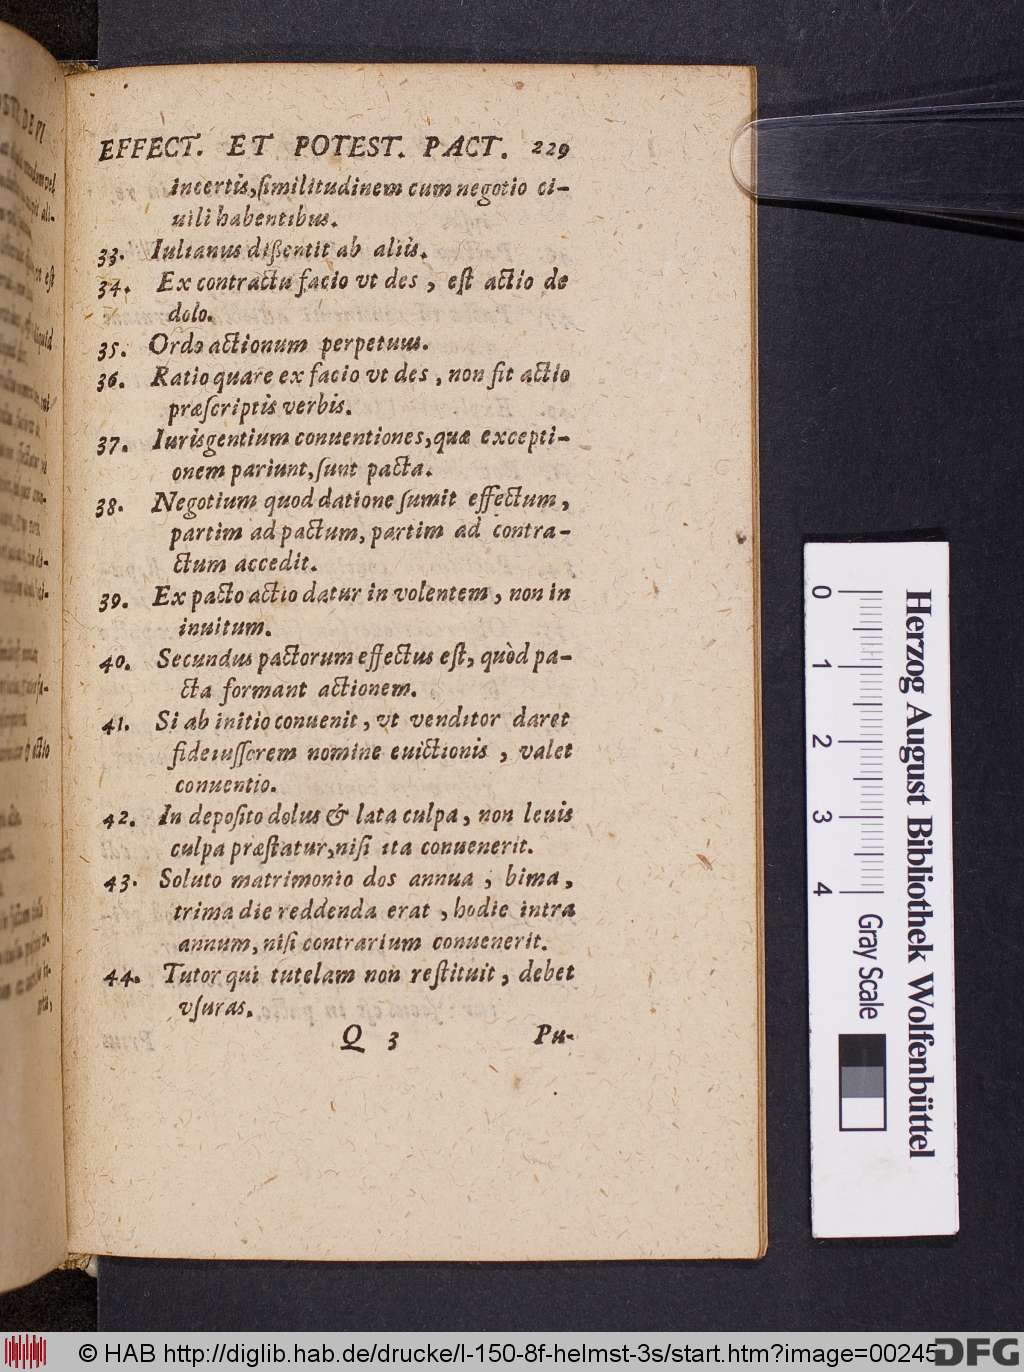 EFFECT. ET POTEST. PACT. 229
incertis, ſimilitudinem cum negotio ci-
uili habentibus.
33. Iulianus dißentit ab aliis.
34. Ex contractu facio vt des, eſt actio de
dolo.
35. Ordo actionum perpetuus.
36. Ratio quare ex facio vt des, non ſit actio
præſcriptis verbis.
37. Iurisgentium conuentiones, quæ excepti-
onem pariunt, ſunt pacta.
38. Negotium quod datione ſumit effectum,
partim ad pactum, partim ad contra-
ctum accedit.
39. Ex pacto actio datur in volentem, non in
inuitum.
40. Secundus pactorum effectus eſt, quòd pa-
cta formant actionem.
41. Si ab initio conuenit, vt venditor daret
fideiuſſorem nomine euictionis, valet
conuentio.
42. In depoſito dolus & lata culpa, non leuis
culpa præſtatur, niſi ita conuenerit.
43. Soluto matrimonio dos annua, bima,
trima die reddenda erat, hodie intra
annum, niſi contrarium conuenerit.
44. Tutor qui tutelam non reſtituit, debet
vſuras.
Q 3 Pu-
0 1 2 3 4 Gray Scale
Herzog August Bibliothek Wolfenbüttel
© HAB http://diglib.hab.de/drucke/l-150-8f-helmst-3s/start.htm?image=00245
DFG